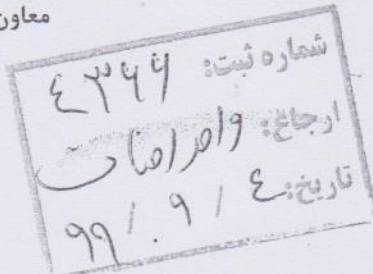 معاون
شماره ثبت: ٤٣۶۶
ارجاع: واحد
تاریخ: ٤ / ٩ / ٩٩